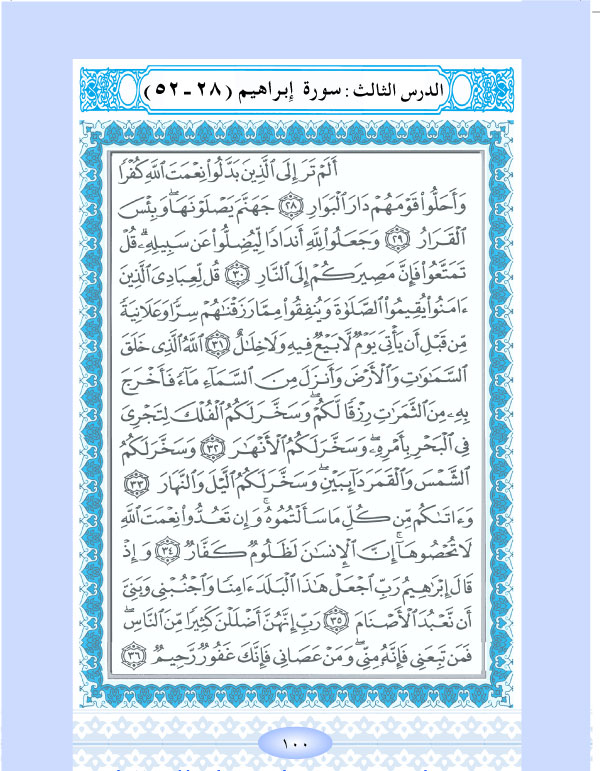 الدرس الثالث : سورة إبراهيم ( ٢٨ - ٥٢ )
أَلَمْ تَرَ إِلَى ٱلَّذِينَ بَدَّلُوا۟ نِعْمَتَ ٱللَّهِ كُفْرًا
وَأَحَلُّوا۟ قَوْمَهُمْ دَارَ ٱلْبَوَارِ ٢٨ جَهَنَّمَ يَصْلَوْنَهَا ۖ وَبِئْسَ
ٱلْقَرَارُ ٢٩ وَجَعَلُوا۟ لِلَّهِ أَندَادًا لِّيُضِلُّوا۟ عَن سَبِيلِهِۦ ۗ قُلْ
تَمَتَّعُوا۟ فَإِنَّ مَصِيرَكُمْ إِلَى ٱلنَّارِ ٣٠ قُل لِّعِبَادِىَ ٱلَّذِينَ
ءَامَنُوا۟ يُقِيمُوا۟ ٱلصَّلَوٰةَ وَيُنفِقُوا۟ مِمَّا رَزَقْنَٰهُمْ سِرًّا وَعَلَانِيَةً
مِّن قَبْلِ أَن يَأْتِىَ يَوْمٌ لَّا بَيْعٌ فِيهِ وَلَا خِلَٰلٌ ٣١ ٱللَّهُ ٱلَّذِى خَلَقَ
ٱلسَّمَٰوَٰتِ وَٱلْأَرْضَ وَأَنزَلَ مِنَ ٱلسَّمَآءِ مَآءً فَأَخْرَجَ
بِهِۦ مِنَ ٱلثَّمَرَٰتِ رِزْقًا لَّكُمْ ۖ وَسَخَّرَ لَكُمُ ٱلْفُلْكَ لِتَجْرِىَ
فِى ٱلْبَحْرِ بِأَمْرِهِۦ ۖ وَسَخَّرَ لَكُمُ ٱلْأَنْهَٰرَ ٣٢ وَسَخَّرَ لَكُمُ
ٱلشَّمْسَ وَٱلْقَمَرَ دَآئِبَيْنِ ۖ وَسَخَّرَ لَكُمُ ٱلَّيْلَ وَٱلنَّهَارَ ٣٣
وَءَاتَىٰكُم مِّن كُلِّ مَا سَأَلْتُمُوهُ ۚ وَإِن تَعُدُّوا۟ نِعْمَتَ ٱللَّهِ
لَا تُحْصُوهَآ ۗ إِنَّ ٱلْإِنسَٰنَ لَظَلُومٌ كَفَّارٌ ٣٤ وَإِذْ
قَالَ إِبْرَٰهِيمُ رَبِّ ٱجْعَلْ هَٰذَا ٱلْبَلَدَ ءَامِنًا وَٱجْنُبْنِى وَبَنِىَّ
أَن نَّعْبُدَ ٱلْأَصْنَامَ ٣٥ رَبِّ إِنَّهُنَّ أَضْلَلْنَ كَثِيرًا مِّنَ ٱلنَّاسِ ۖ
فَمَن تَبِعَنِى فَإِنَّهُۥ مِنِّى ۖ وَمَنْ عَصَانِى فَإِنَّكَ غَفُورٌ رَّحِيمٌ ٣٦
١٠٠